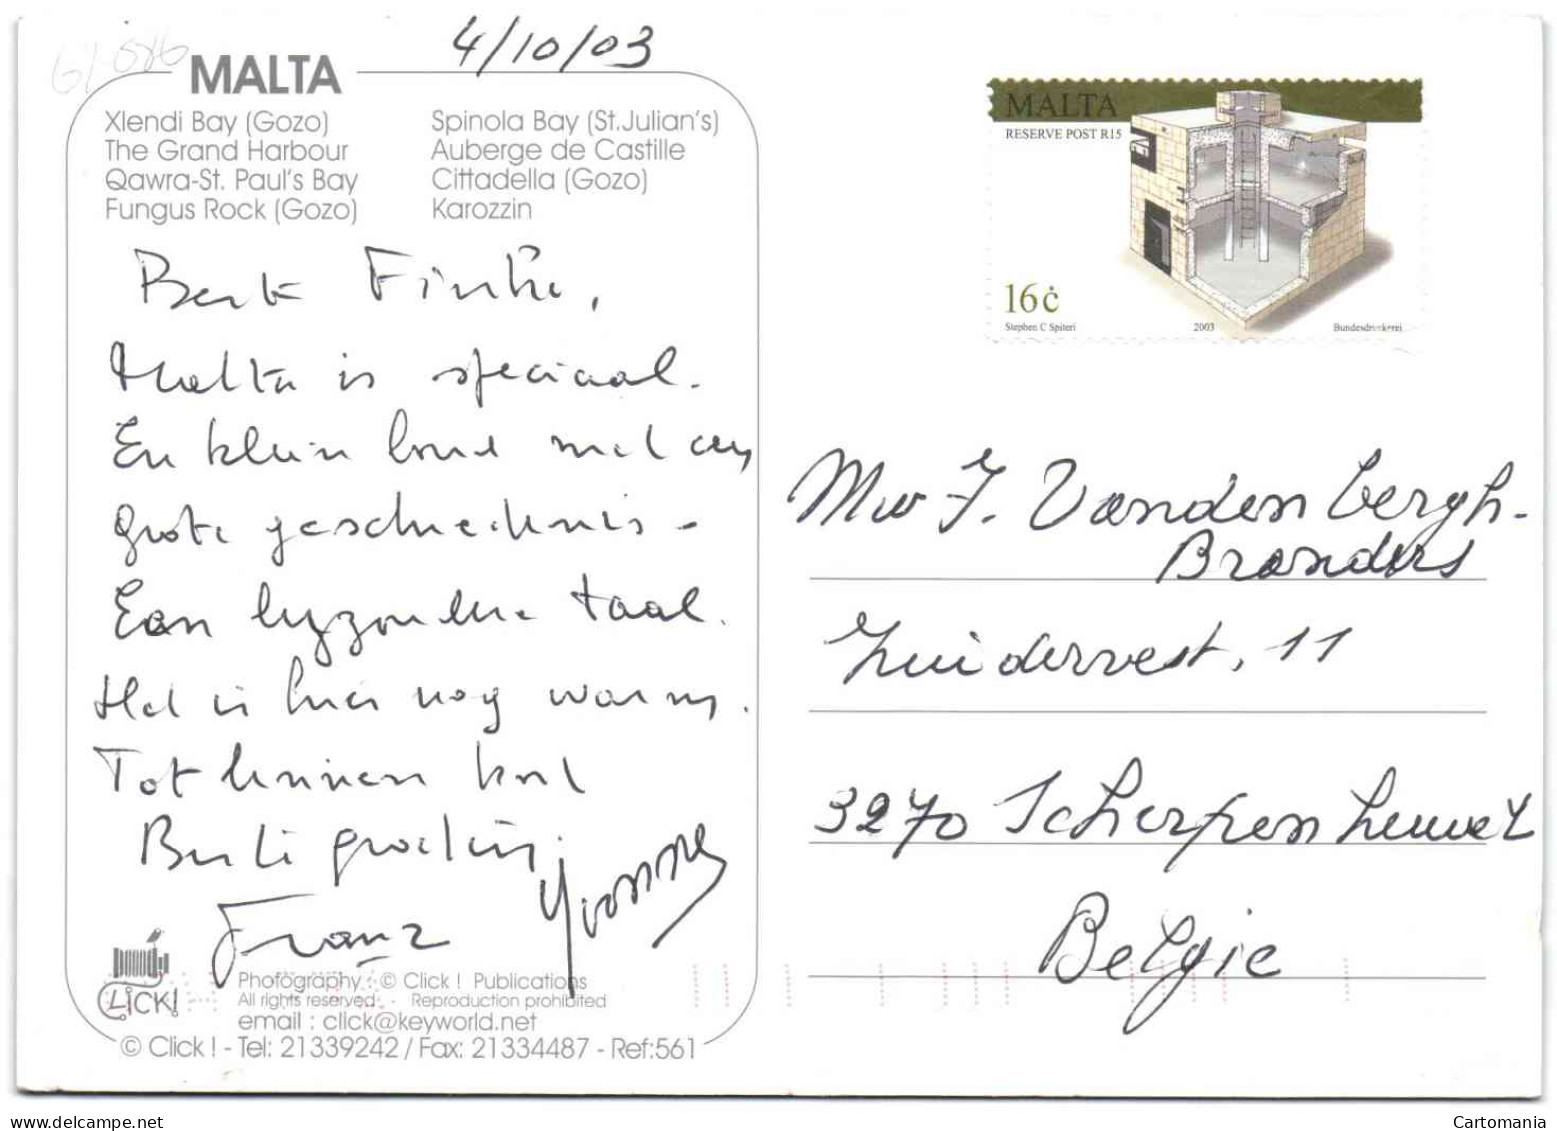 4/10/03
MALTA
Xlendi Bay (Gozo)
The Grand Harbour
Qawra-St. Paul's Bay
Fungus Rock (Gozo)
Spinola Bay (St.Julian's)
Auberge de Castille
Cittadella (Gozo)
Karozzin
Malta is speciaal.
En klein land met een
grote geschiedenis -
Een byzondere taal.
Het is hier nog warm.
Tot binnen kort
Beste groeten,
Franz Yvonne
CLICK!
Photography : © Click ! Publications
All rights reserved - Reproduction prohibited
email : click@keyworld.net
© Click ! - Tel: 21339242 / Fax: 21334487 - Ref:561
MALTA
RESERVE POST R15
16ċ
Stephen C Spiteri 2003 Bundesdruckerei
Mw J. Vandenbergh-
Branders
Zuidervest, 11
3270 Scherpenheuvel
Belgie
Cartomania